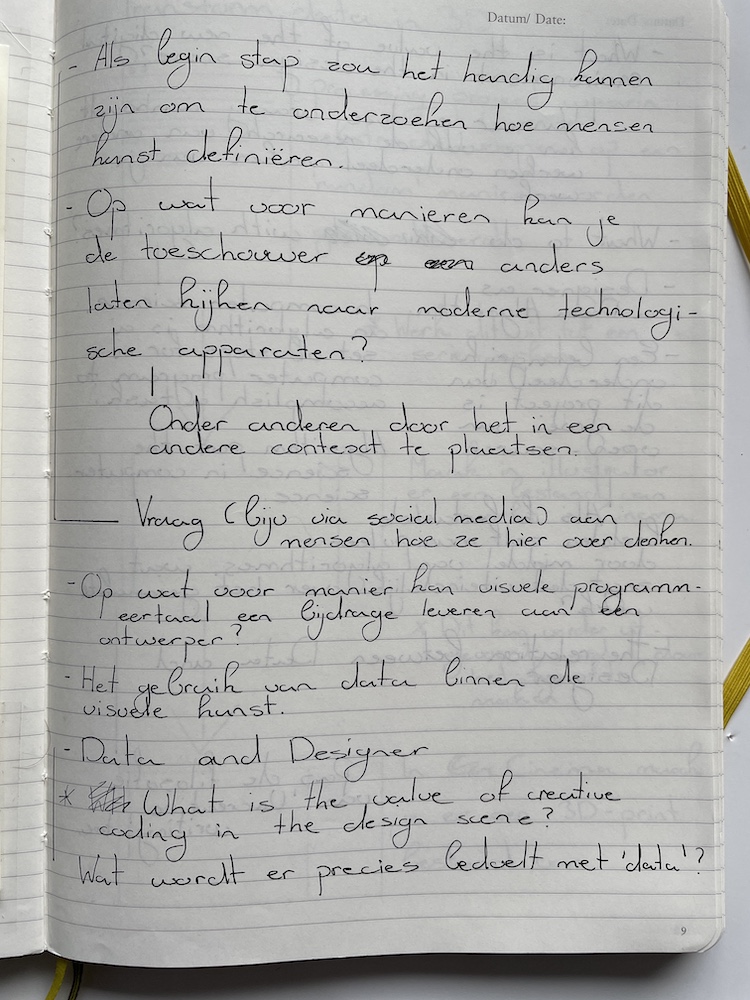 Datum/ Date:
- Als begin stap zou het handig kunnen
zijn om te onderzoeken hoe mensen
kunst definiëren.
- Op wat voor manieren kan je
de toeschouwer anders
laten kijken naar moderne technologi-
sche apparaten?
Onder anderen door het in een
andere context te plaatsen.
Vraag (bijv via social media) aan
mensen hoe ze hier over denken.
- Op wat voor manier kan visuele programm-
eertaal een bijdrage leveren aan een
ontwerper?
- Het gebruik van data binnen de
visuele kunst.
- Data and Designer
* What is the value of creative
coding in the design scene?
Wat wordt er precies bedoelt met 'data'?
9